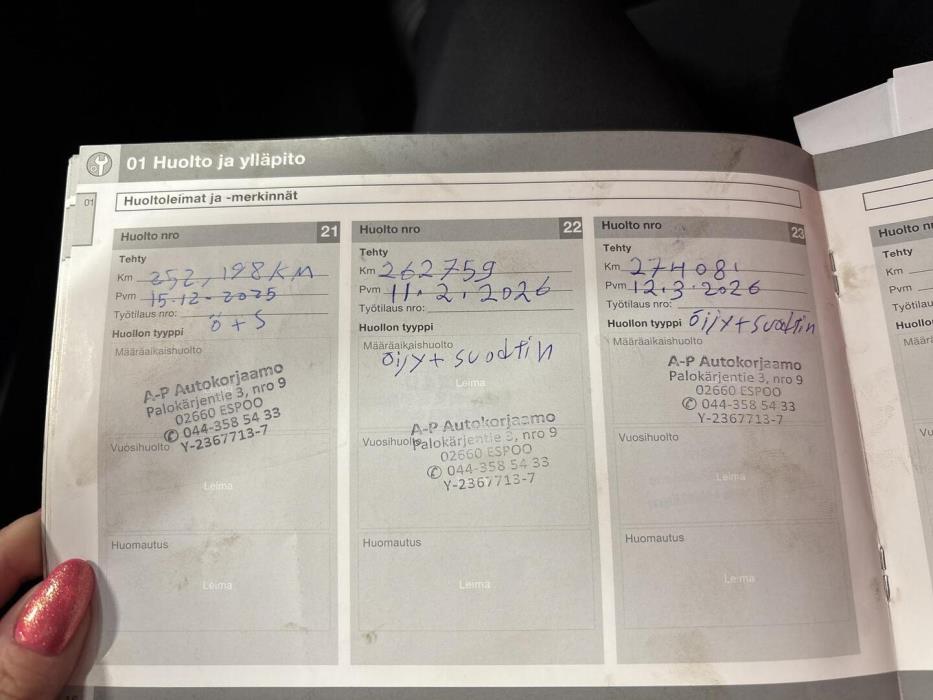 01 Huolto ja ylläpito
01
Huoltoleimat ja -merkinnät
Huolto nro 21
Tehty
Km 252,198 KM
Pvm 15.12-2025
Työtilaus nro:
Huollon tyyppi ö + S
Määräaikaishuolto
A-P Autokorjaamo
Palokärjentie 3, nro 9
02660 ESPOO
✆ 044-358 54 33
Y-2367713-7
Vuosihuolto
Leima
Huomautus
Leima
Huolto nro 22
Tehty
Km 262759
Pvm 11.2.2026
Työtilaus nro:
Huollon tyyppi
Määräaikaishuolto
öijy+suodtin
Leima
A-P Autokorjaamo
Vuosihuolto
Palokärjentie 3, nro 9
02660 ESPOO
✆ 044-358 54 33
Y-2367713-7
Huomautus
Leima
Huolto nro 23
Tehty
Km 274081
Pvm 12.3.2026
Työtilaus nro:
Huollon tyyppi öijy+suodtin
Määräaikaishuolto
A-P Autokorjaamo
Palokärjentie 3, nro 9
02660 ESPOO
✆ 044-358 54 33
Y-2367713-7
Vuosihuolto
Leima
Huomautus
Leima
Huolto
Tehty
Km
Pvm